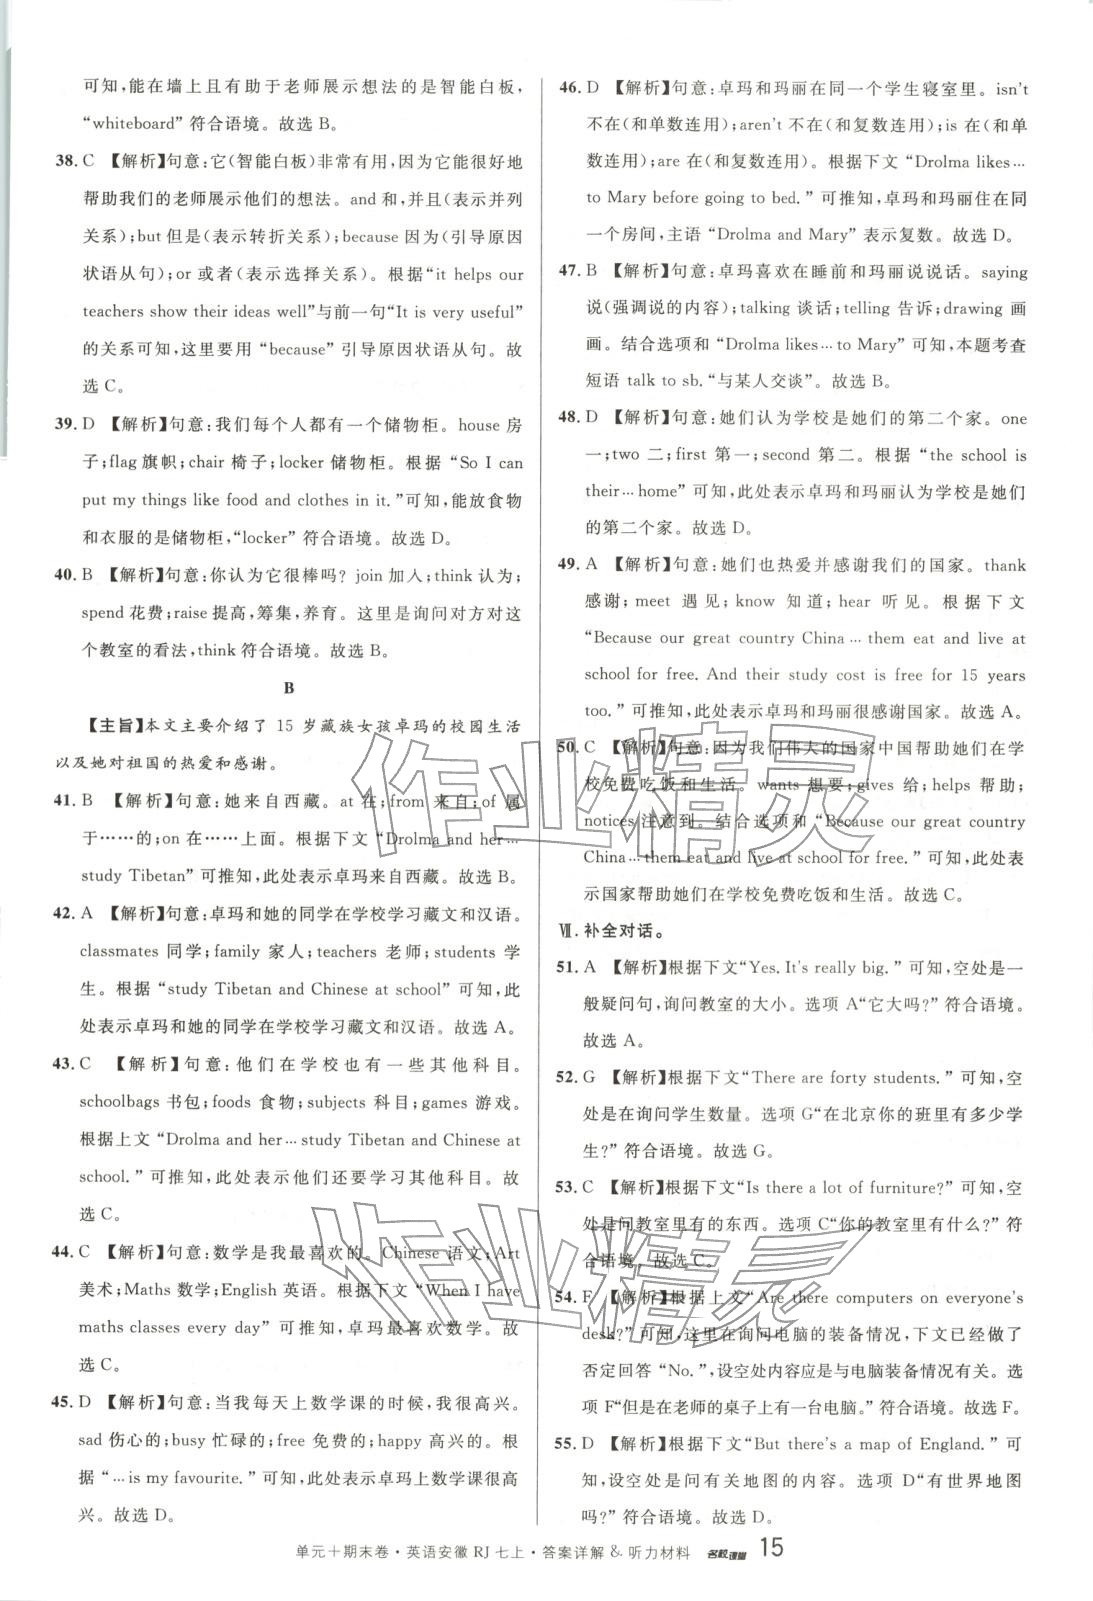 可知,能在墙上且有助于老师展示想法的是智能白板,
“whiteboard”符合语境。故选 B。
38. C 【解析】句意:它(智能白板)非常有用,因为它能很好地
帮助我们的老师展示他们的想法。and 和,并且(表示并列
关系);but 但是(表示转折关系);because 因为(引导原因
状语从句);or 或者(表示选择关系)。根据“it helps our
teachers show their ideas well”与前一句“It is very useful”
的关系可知,这里要用“because”引导原因状语从句。故
选 C。
39. D 【解析】句意:我们每个人都有一个储物柜。house 房
子;flag 旗帜;chair 椅子;locker 储物柜。根据“So I can
put my things like food and clothes in it.”可知,能放食物
和衣服的是储物柜,“locker”符合语境。故选 D。
40. B 【解析】句意:你认为它很棒吗? join 加入;think 认为;
spend 花费;raise 提高,筹集,养育。这里是询问对方对这
个教室的看法,think 符合语境。故选 B。
B
【主旨】本文主要介绍了 15 岁藏族女孩卓玛的校园生活
以及她对祖国的热爱和感谢。
41. B 【解析】句意:她来自西藏。at 在;from 来自;of 属
于……的;on 在……上面。根据下文“Drolma and her…
study Tibetan”可推知,此处表示卓玛来自西藏。故选 B。
42. A 【解析】句意:卓玛和她的同学在学校学习藏文和汉语。
classmates 同学;family 家人;teachers 老师;students 学
生。根据“study Tibetan and Chinese at school”可知,此
处表示卓玛和她的同学在学校学习藏文和汉语。故选 A。
43. C 【解析】句意:他们在学校也有一些其他科目。
schoolbags 书包;foods 食物;subjects 科目;games 游戏。
根据上文“Drolma and her…study Tibetan and Chinese at
school.”可推知,此处表示他们还要学习其他科目。故
选 C。
44. C 【解析】句意:数学是我最喜欢的。Chinese 语文;Art
美术;Maths 数学;English 英语。根据下文“When I have
maths classes every day”可推知,卓玛最喜欢数学。故
选 C。
45. D 【解析】句意:当我每天上数学课的时候,我很高兴。
sad 伤心的;busy 忙碌的;free 免费的;happy 高兴的。根
据“…is my favourite.”可知,此处表示卓玛上数学课很高
兴。故选 D。
46. D 【解析】句意:卓玛和玛丽在同一个学生寝室里。isn't
不在(和单数连用);aren't 不在(和复数连用);is 在(和单
数连用);are 在(和复数连用)。根据下文“Drolma likes…
to Mary before going to bed.”可推知,卓玛和玛丽住在同
一个房间,主语“Drolma and Mary”表示复数。故选 D。
47. B 【解析】句意:卓玛喜欢在睡前和玛丽说说话。saying
说(强调说的内容);talking 谈话;telling 告诉;drawing 画
画。结合选项和“Drolma likes…to Mary”可知,本题考查
短语 talk to sb.“与某人交谈”。故选 B。
48. D 【解析】句意:她们认为学校是她们的第二个家。one
一;two 二;first 第一;second 第二。根据“the school is
their…home”可知,此处表示卓玛和玛丽认为学校是她们
的第二个家。故选 D。
49. A 【解析】句意:她们也热爱并感谢我们的国家。thank
感谢;meet 遇见;know 知道;hear 听见。根据下文
“Because our great country China…them eat and live at
school for free. And their study cost is free for 15 years
too.”可推知,此处表示卓玛和玛丽很感谢国家。故选 A。
50. C 【解析】句意:因为我们伟大的国家中国帮助她们在学
校免费吃饭和生活。wants 想要;gives 给;helps 帮助;
notices 注意到。结合选项和“Because our great country
China…them eat and live at school for free.”可知,此处表
示国家帮助她们在学校免费吃饭和生活。故选 C。
Ⅶ. 补全对话。
51. A 【解析】根据下文“Yes. It's really big.”可知,空处是一
般疑问句,询问教室的大小。选项 A“它大吗?”符合语境。
故选 A。
52. G 【解析】根据下文“There are forty students.”可知,空
处是在询问学生数量。选项 G“在北京你的班里有多少学
生?”符合语境。故选 G。
53. C 【解析】根据下文“Is there a lot of furniture?”可知,空
处是问教室里有的东西。选项 C“你的教室里有什么?”符
合语境。故选 C。
54. F 【解析】根据上文“Are there computers on everyone's
desk?”可知,这里在询问电脑的装备情况,下文已经做了
否定回答“No.”,设空处内容应是与电脑装备情况有关。选
项 F“但是在老师的桌子上有一台电脑。”符合语境。故选 F。
55. D 【解析】根据下文“But there's a map of England.”可
知,设空处是问有关地图的内容。选项 D“有世界地图
吗?”符合语境。故选 D。
单元十期末卷·英语安徽 RJ 七上·答案详解 & 听力材料 名校课堂 15
作业精灵
作业精灵